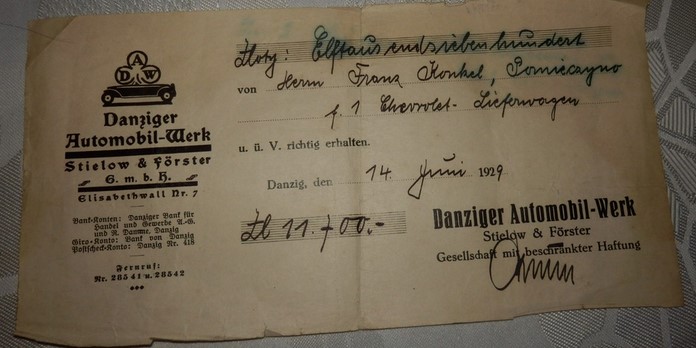 DAW
Danziger
Automobil-Werk
Stielow & Förster
G. m. b. H.
Elisabethwall Nr. 7
Bank-Konten: Danziger Bank für
Handel und Gewerbe A.-G.
und R. Damme, Danzig
Giro-Konto: Bank von Danzig
Postscheck-Konto: Danzig Nr. 418
Fernruf:
Nr. 285 41 u. 285 42
Zloty: Elftausendsiebenhundert
von Herrn Franz Konkel, Pomieczyno
f. 1 Chevrolet-Lieferwagen
u. ü. V. richtig erhalten.
Danzig, den 14. Juni 1929
Zl 11.700.-
Danziger Automobil-Werk
Stielow & Förster
Gesellschaft mit beschränkter Haftung